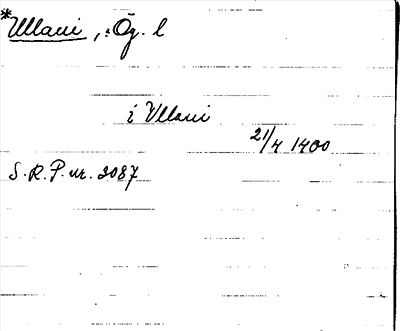 *Ullavi, Ög. l
i Vllavi
21/4 1400
S.R.P. nr. 3087